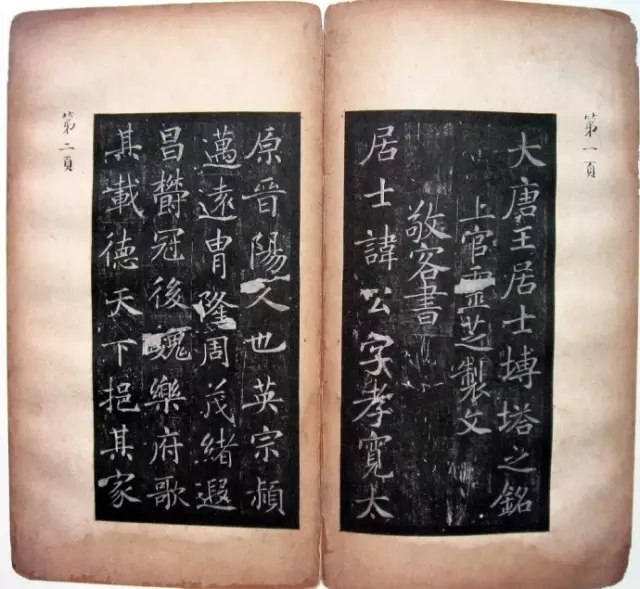 第一頁
大唐王居士塼塔之銘
上官靈芝製文
敬客書
居士諱公字孝寬太
第二頁
原晉陽人也英宗頴
邁遠胄隆周茂緒遐
昌欝冠後魏樂府歌
其載德天下挹其家